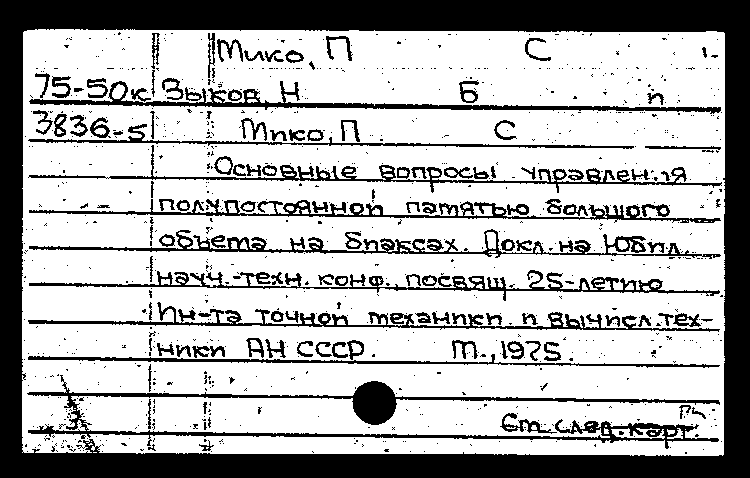 Мико, П С 1-
75-50к Зыков, Н Б и
3836-5 Мико, П С
Основные вопросы управления
полупостоянной памятью большого
объема на биаксах. Докл. на Юбил.
науч.-техн. конф., посвящ. 25-летию
Ин-та точной механики и вычисл. тех-
ники АН СССР. М., 1975.
См. след. карт.